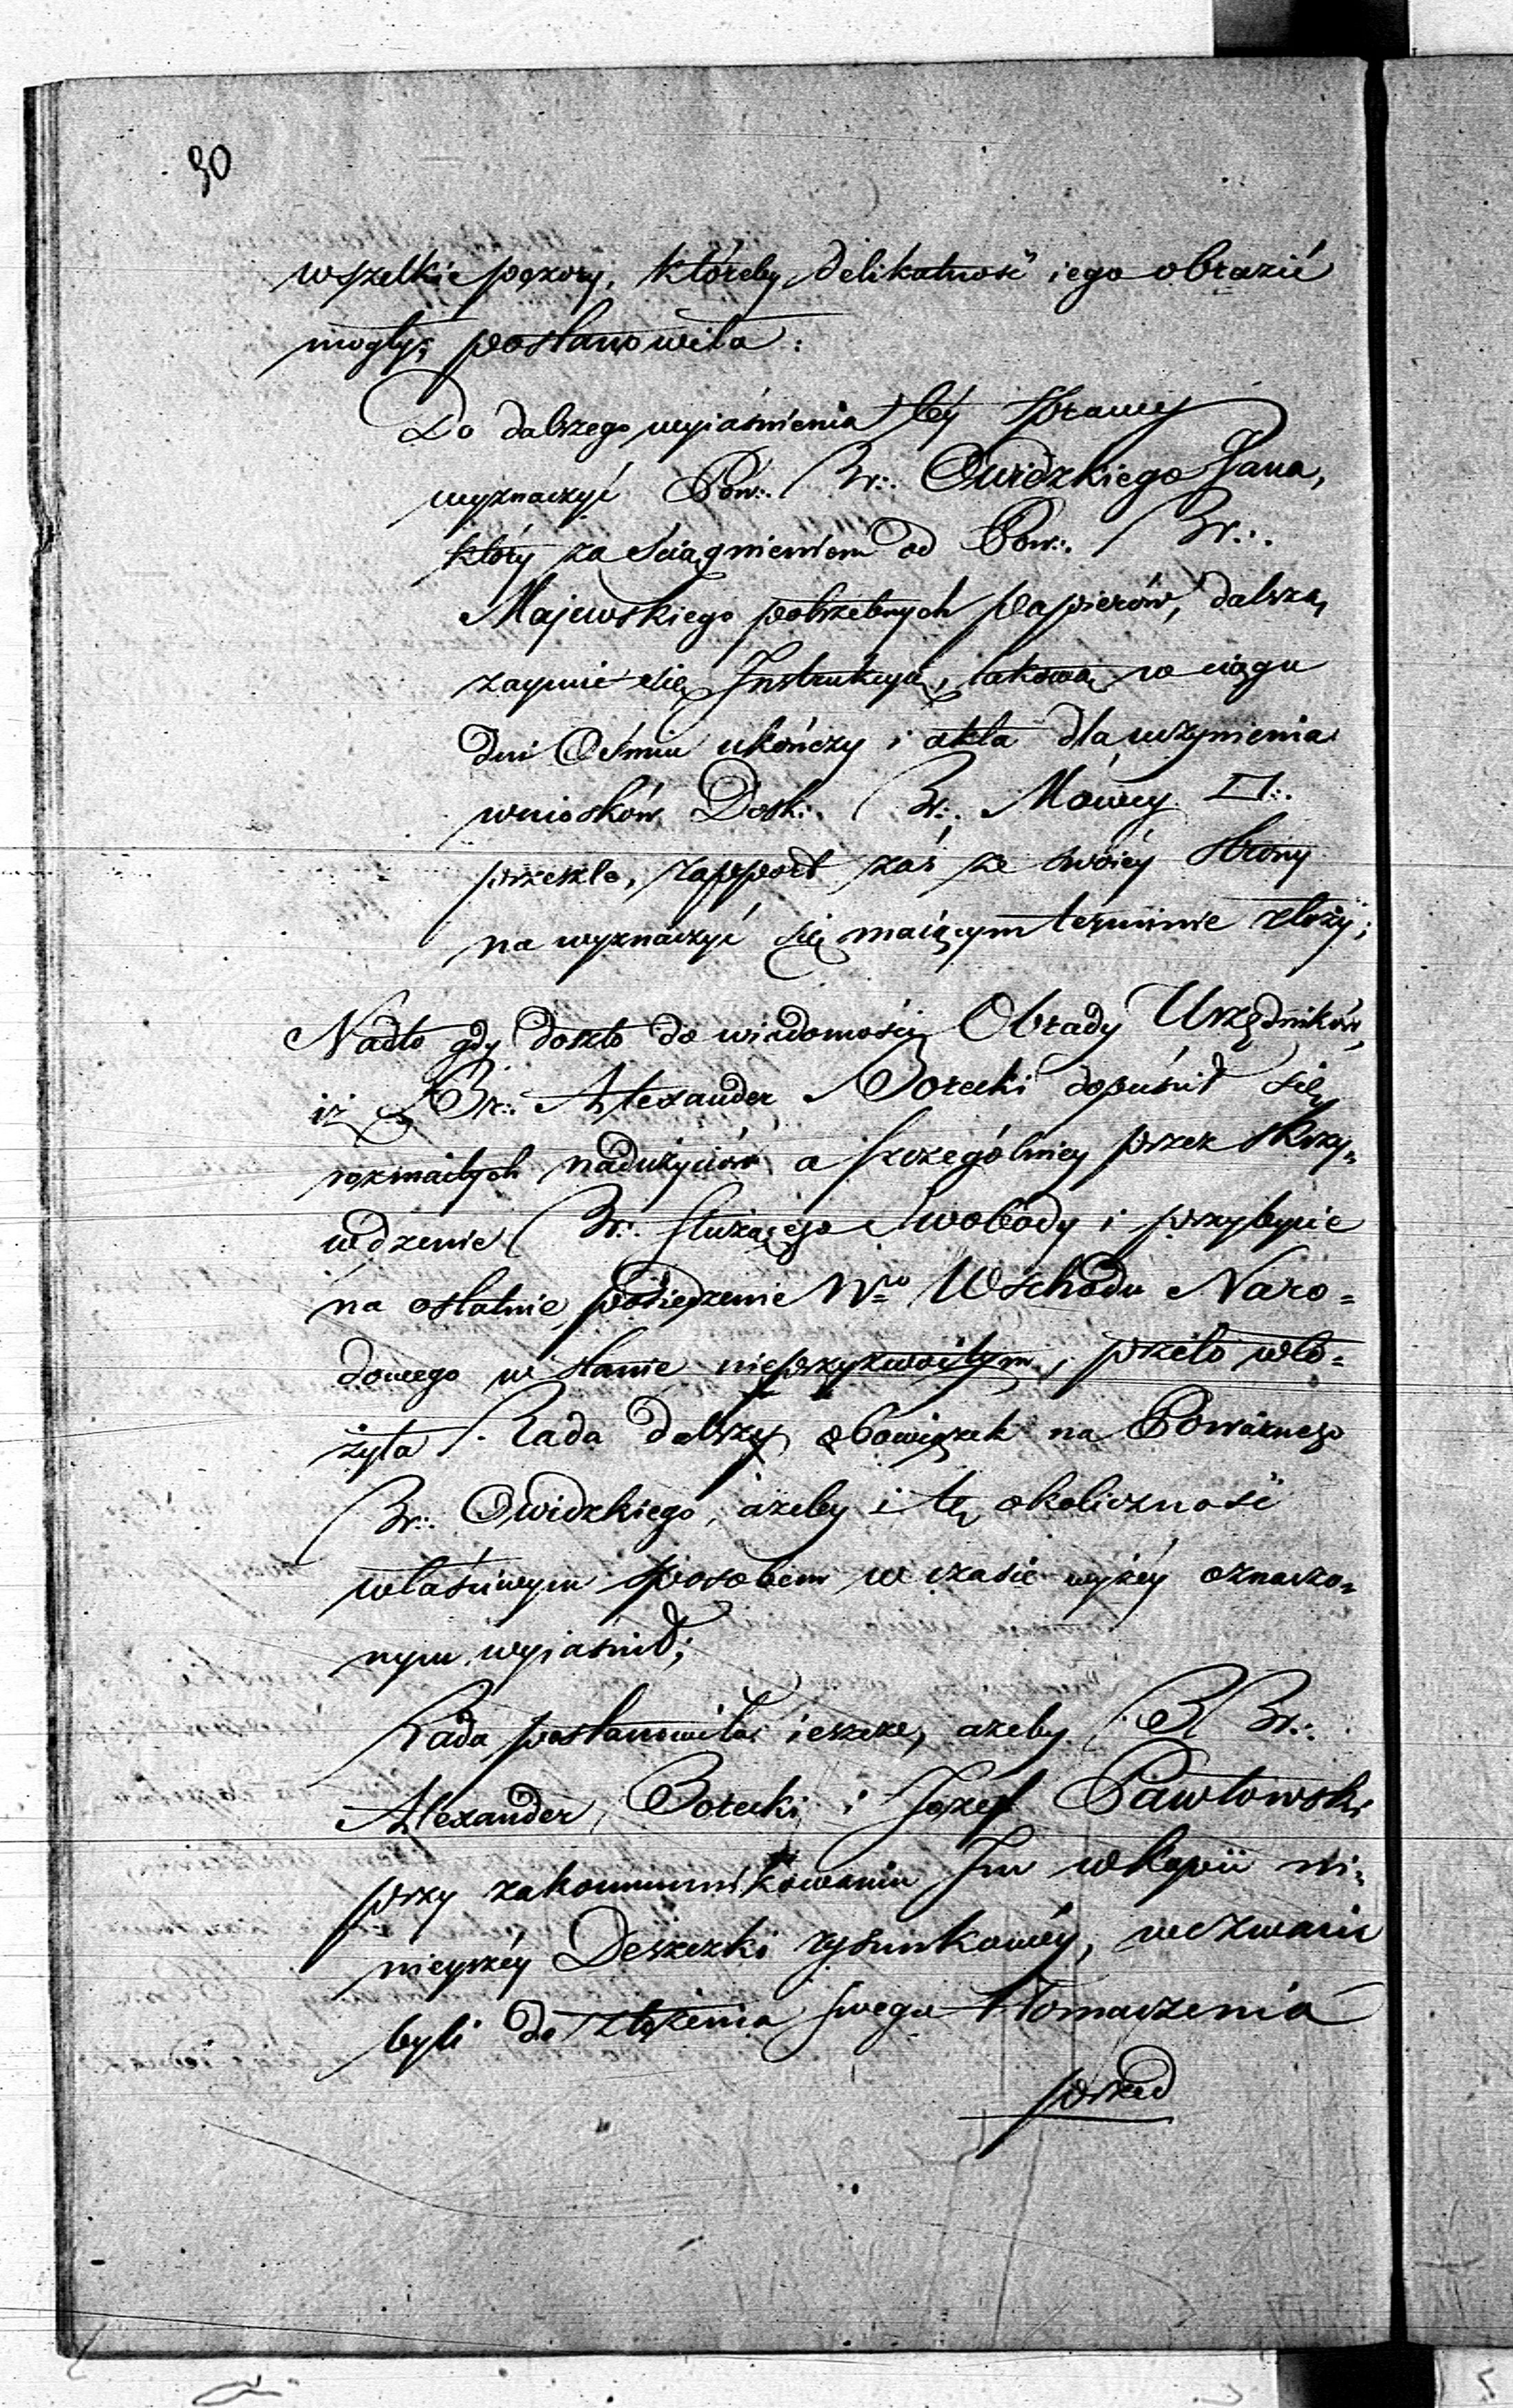 30
wszelkie pozory, któreby delikatność iego obrazić
mogły; postanowiła:
Do dalszego wyiaśnienia téy sprawy
wyznaczyć Pow∴ Br∴ Owidzkiego Jana,
który za ściągnieniem od Pow∴ Br∴
Majewskiego potrzebnych papierów, dalszą
zaymie się Instrukcyą, takową w ciągu
dni Ośmiu ukończy i akta dla uczynienia
wniosków Dosk∴ Br∴ Mówcy □∴
prześzle, rapport zaś ze swoiéy strony
na wyznaczyć się maiącym terminie złoży;
Nadto gdy doszło do wiadomości Obrady Urzędników,
iż Br∴ Alexander Borecki dopuścił się
rozmaitych nadużyciów a szczególniey przez skrzy=
wdzenie Br∴ służącego Swobody i przybycie
na ostatnie posiedzenie Wgo Wschodu Naro=
dowego w stanie nieprzyzwoitym, przeto wło=
żyła Rada dalszy obowiązek na Poważnego
Br∴ Owidzkiego, ażeby i tę okoliczność
właściwym sposobem w czasie wyżéy oznaczo=
nym wyiaśnił;
Rada postanowiła ieszcze, ażeby BBr∴
Alexander Borecki i Jozef Pawłowski
przy zakommunikowaniu Im w kopii ni=
nieyszéy Deszczki rysunkowéy, wezwani
byli do złożenia swego tłomaczenia
przed